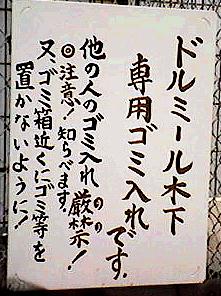 ドルミール木下
専用ゴミ入れです。
他の人のゴミ入れ厳禁!
◎注意!知らべます。のの
又、ゴミ箱近くにゴミ等を
置かないように!